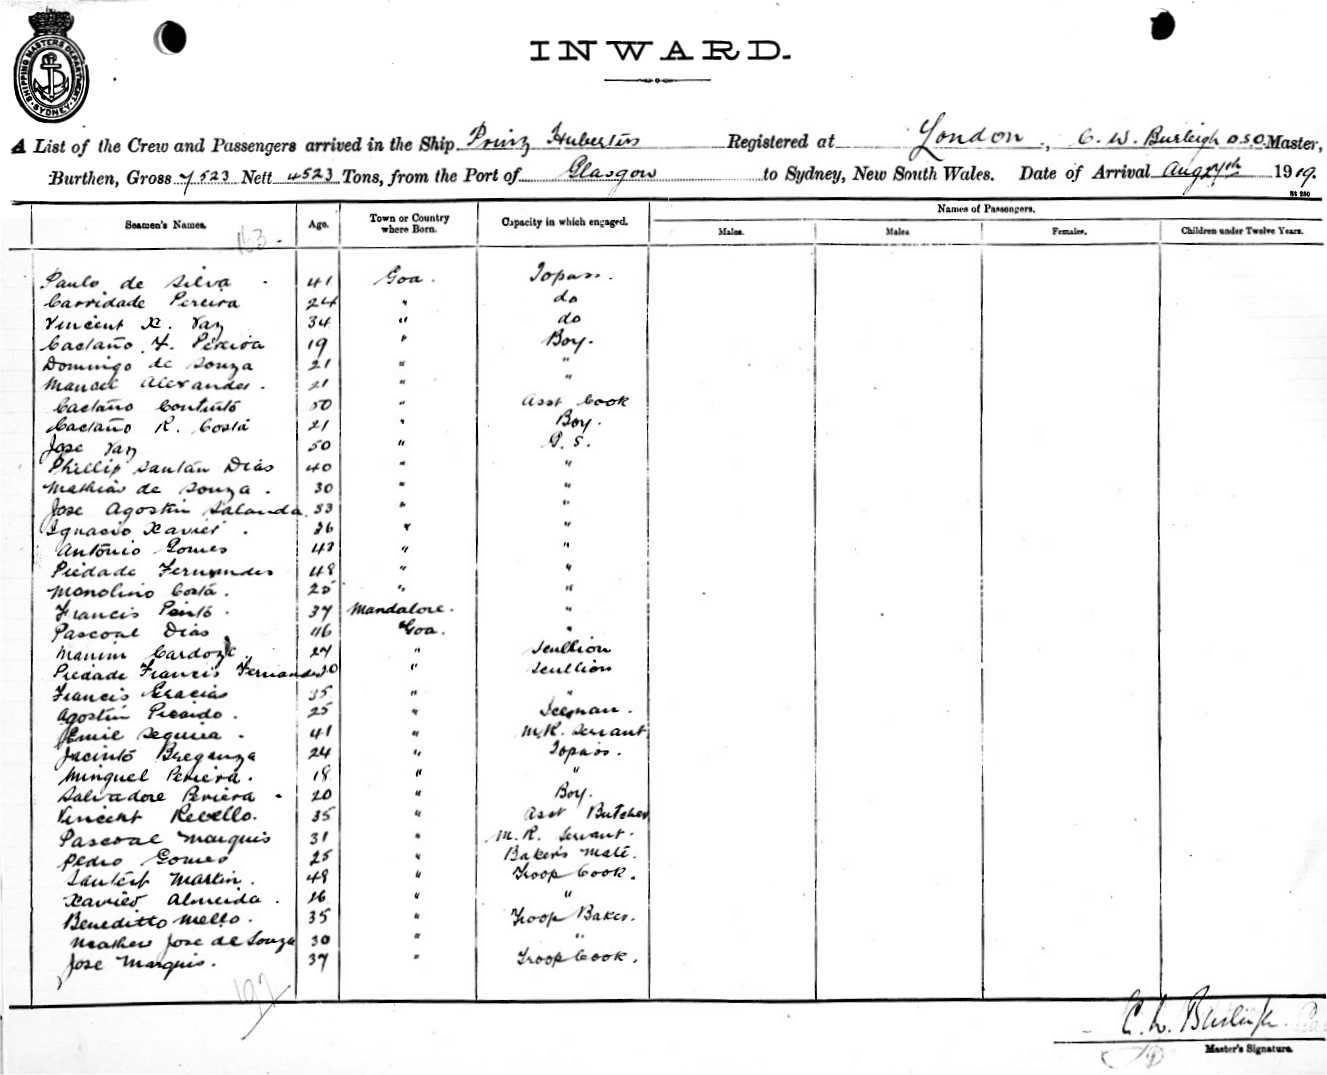 SHIPPING MASTERS DEPARTMENT SYDNEY
INWARD.
A List of the Crew and Passengers arrived in the Ship Prinz Hubertus Registered at London, C. W. Burleigh D.S.O. Master,
Burthen, Gross 7523 Nett 4523 Tons, from the Port of Glasgow to Sydney, New South Wales. Date of Arrival Aug 27th 1919.
Names of Passengers.
Seamen's Names. Age. Town or Country where Born. Capacity in which engaged. Males. Males. Females. Children under Twelve Years.
163.
Paulo de Silva 41 Goa. Topass.
Carridade Pereira 24 " do
Vincent X. Vaz 34 " do
Caetaño F. Pereira 19 " Boy.
Domingo de Souza 21 " "
Manuel Alexander. 21 " "
Caetaño Continto 50 " Asst Cook
Caetaño R. Costa 21 " Boy.
Jose Vaz 50 " G. S.
Phillip Santan Dias 40 " "
Mathias de Souza. 30 " "
Jose Agostin Salanda. 33 " "
Ignacio Xavier. 36 " "
Antonio Gomes 43 " "
Piedade Fernandes 48 " "
Manolino Costa. 25 " "
Francis Pinto. 37 Mandalore. "
Pascoal Dias 46 Goa. "
Cardoz 27 " Scullion
Piedade Francis Fernandes 30 " Scullion
Francis Gracias 35 " "
Agostin Picardo. 25 " Iceman.
Emil Sequira. 41 " M.R. Servant
Jacinto Breganza 24 " Topass.
Minguel Periera. 18 " "
Salvadore Periera 20 " Boy.
Vincent Rebello. 35 " Asst Butcher
Pascoal Marquis 31 " M.R. Servant.
Pedro Gomes 25 " Baker's Mate.
Martin. 48 " Troop Cook.
Xavier Almeida. 26 " "
Beneditto Mello. 35 " Troop Baker.
Mathew Jose de Souza 30 " "
Jose Marquis. 37 " Troop Cook.
197
C. W. Burleigh
Master's Signature.